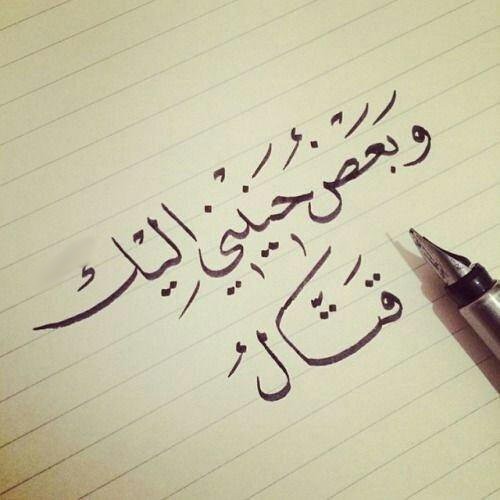 وَبَعْضُ حَنِيْنِي إليْك
قَتَّالُ